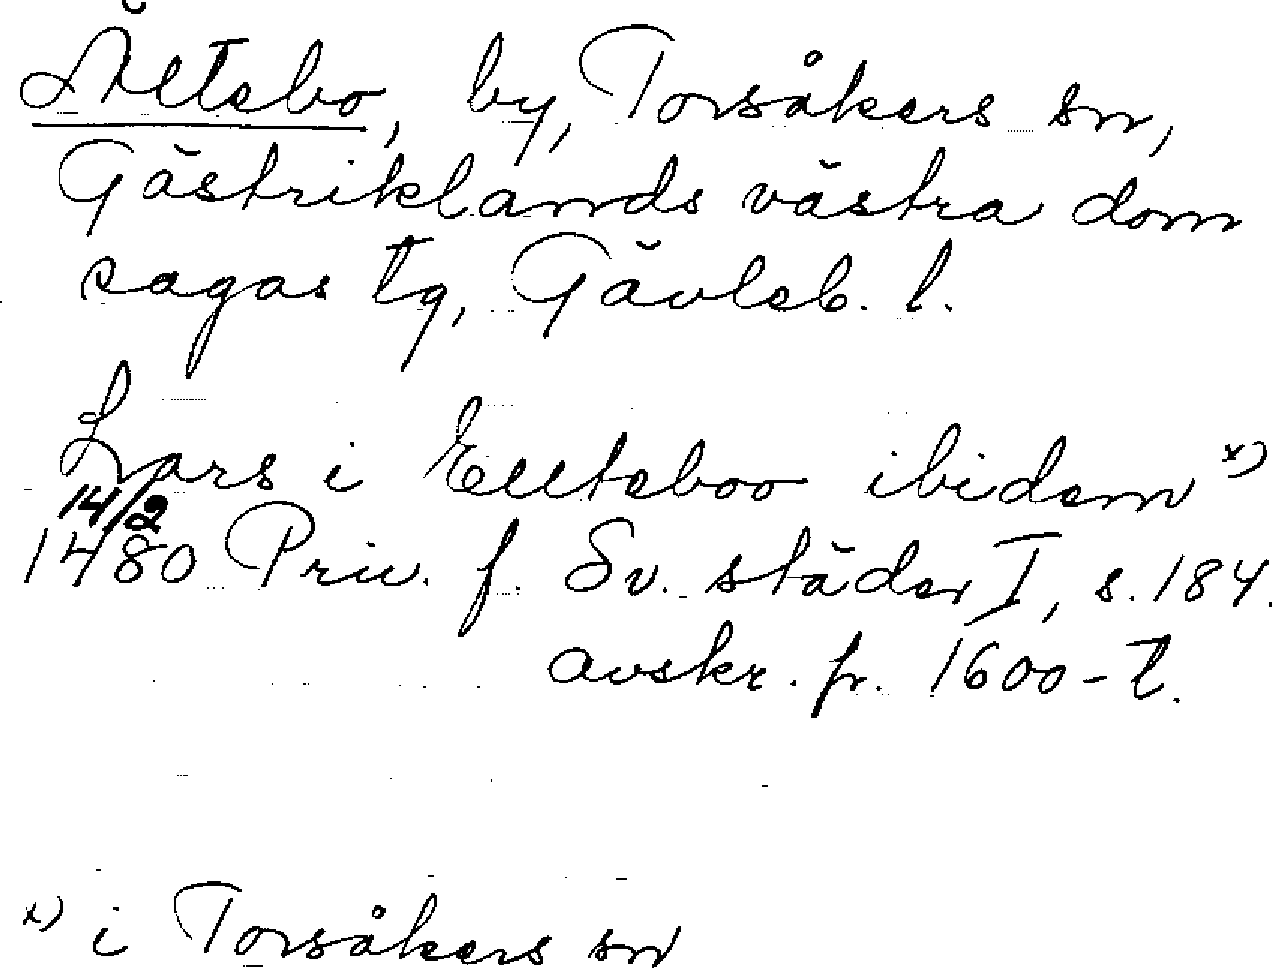 Ältebo, by, Torsåkers sn,
Gästriklands västra dom
sagas tg, Gävleb. l.
Lars i Ellteboo ibidem x)
14/2
1480 Priv. f. Sv. städer I, s. 184.
avskr. fr. 1600-t.
x) i Torsåkers sn